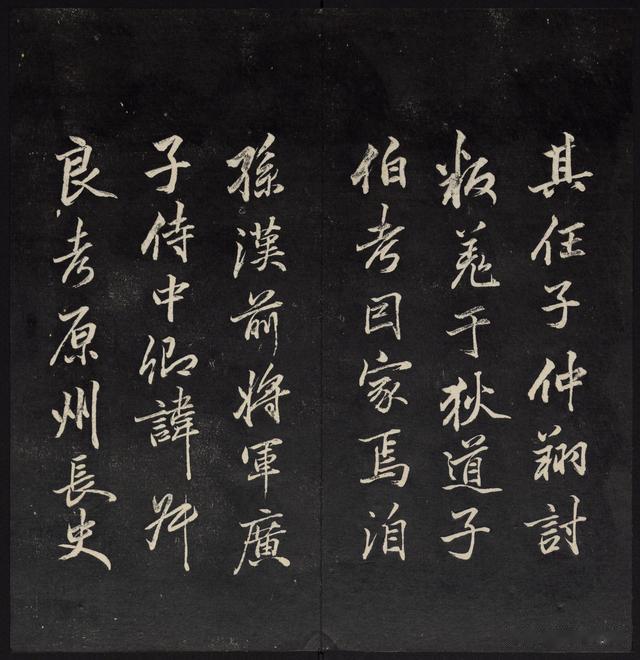 其任子仲翔討
叛羌于狄道子
伯考因家焉洎
孫漢前將軍廣
子侍中卿諱
良考原州長史